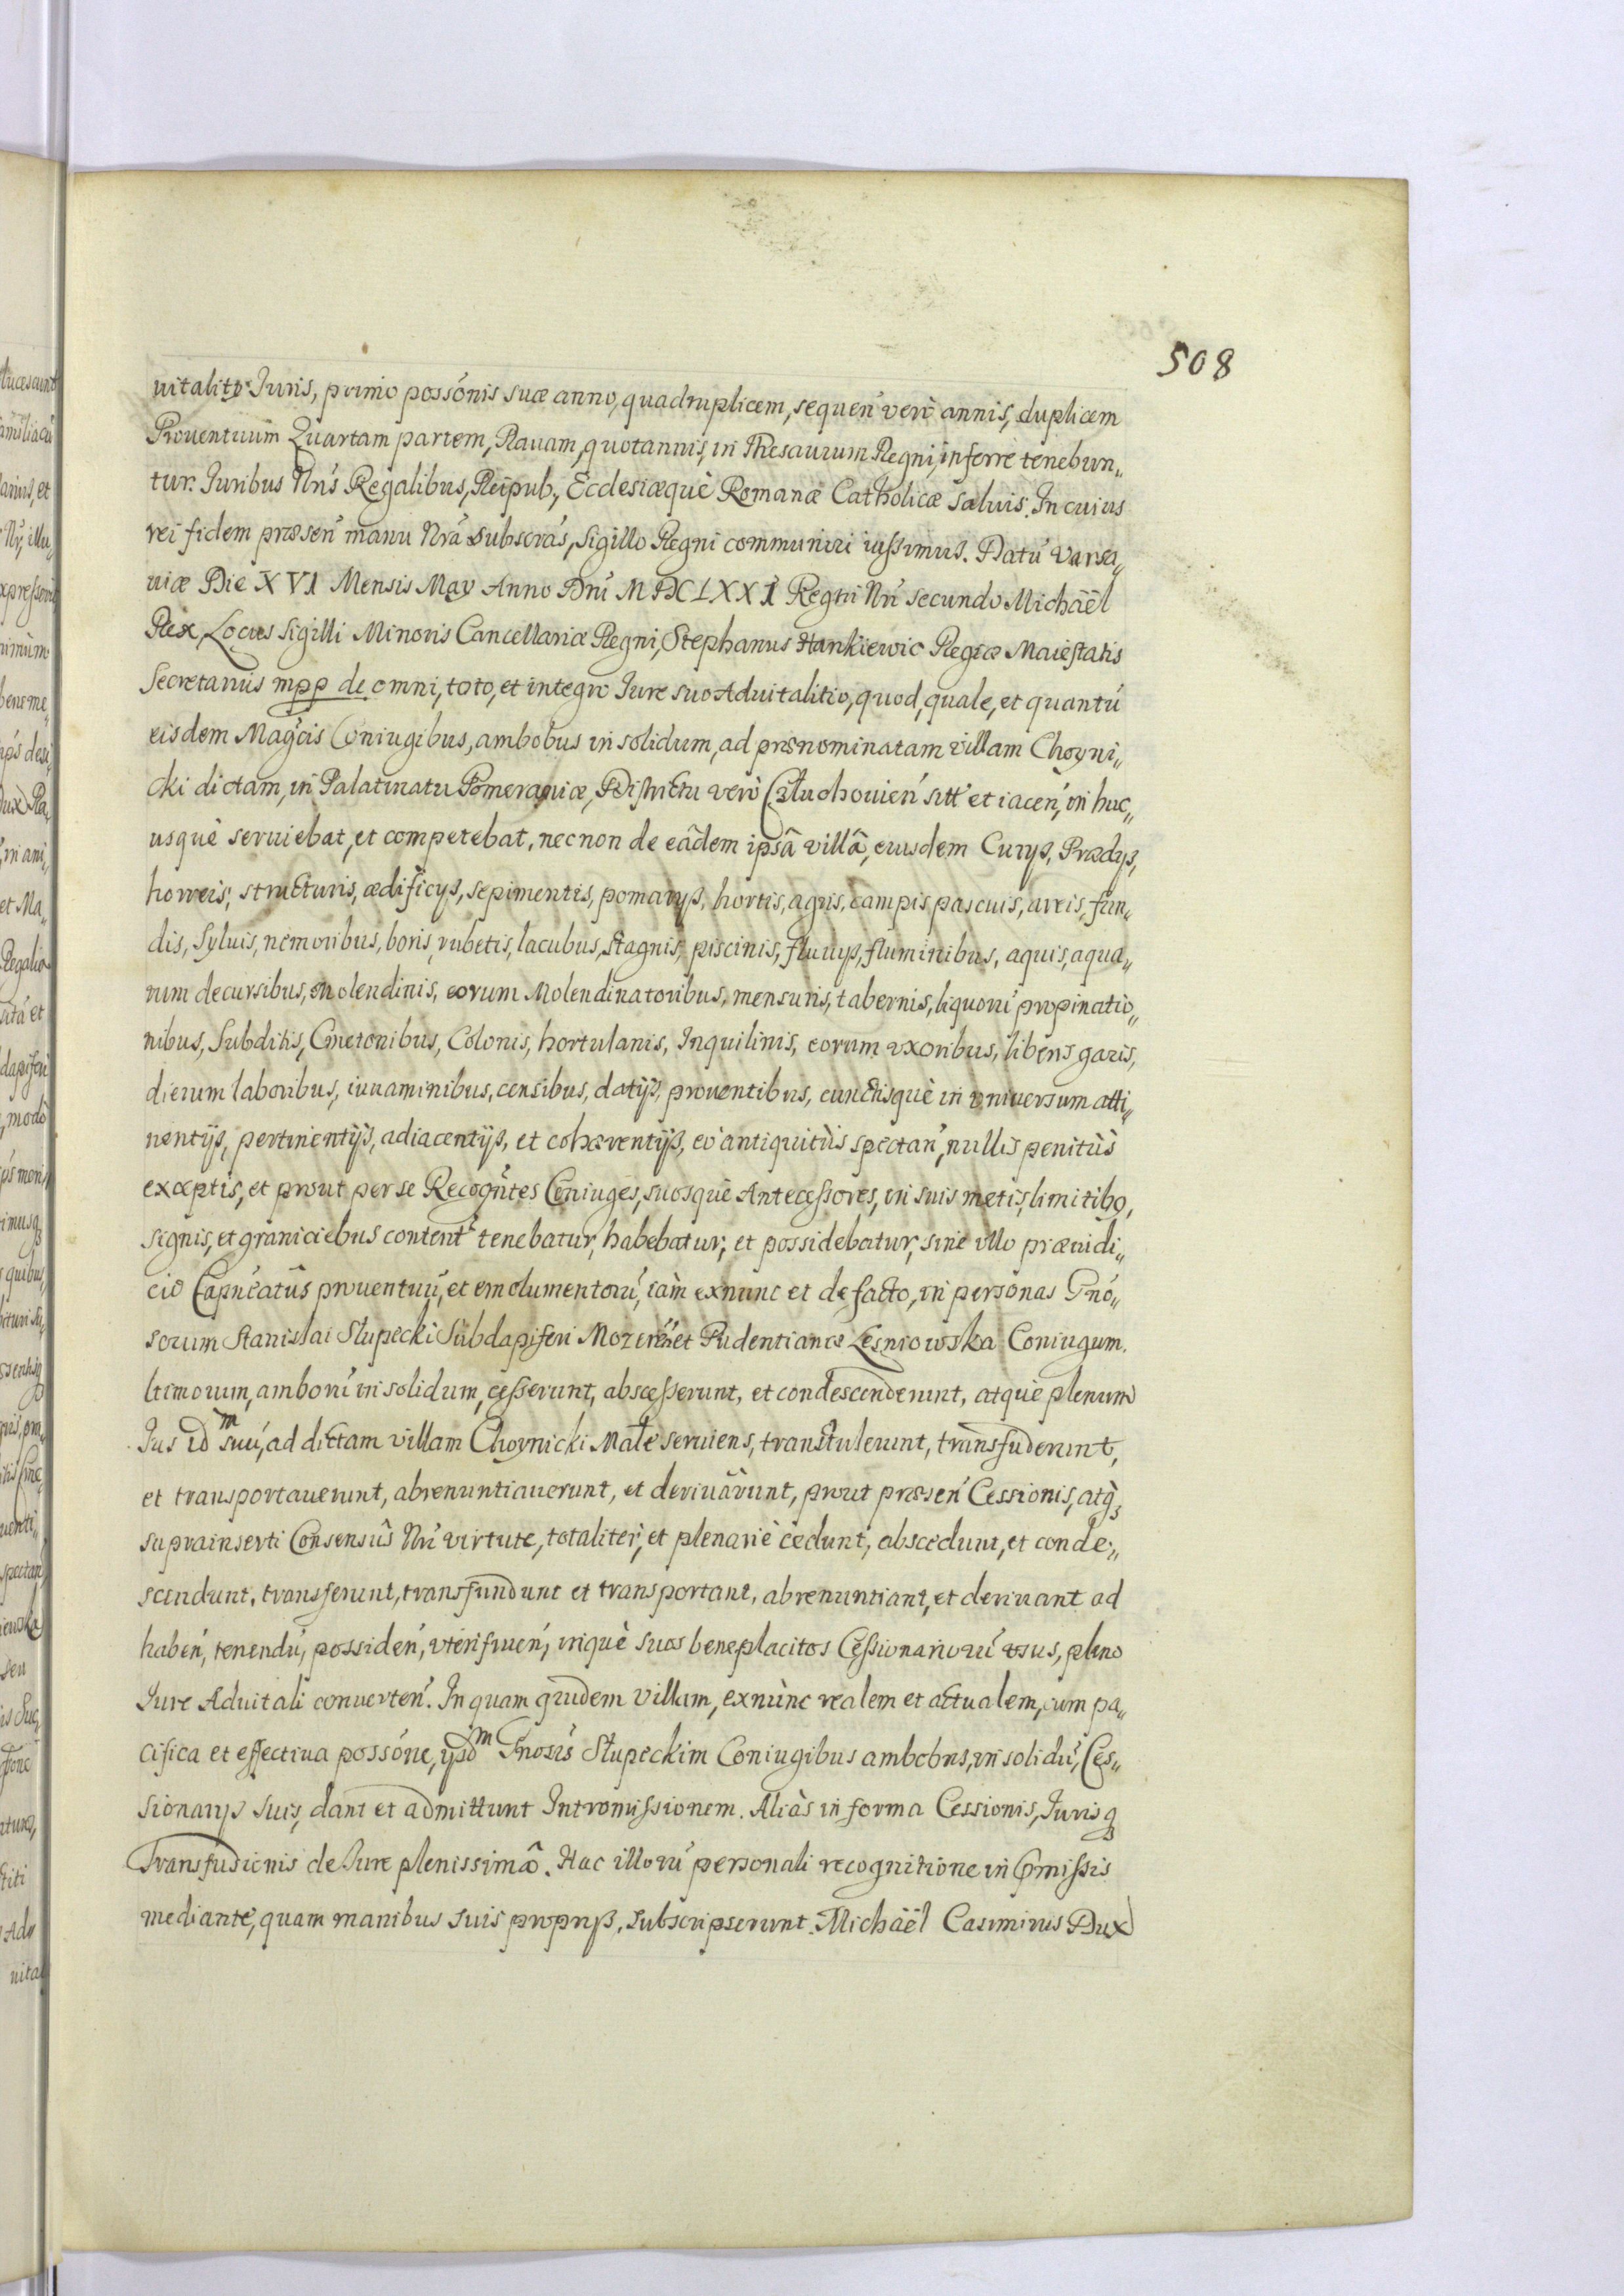 508
uitalitÿ Iuris, primo possónis suæ anno, quadruplicem, sequen' verò annis, duplicem
Prouentuum Quartam partem, Rauam, quotannis, in Thesaurum Regni, inferre tenebun„
tur. Iuribus Nris Regalibus, Reipub, Ecclesiæquè Romanæ Catholicæ saluis. In cuius
rei fidem præsen' manu Nrâ subscras, Sigillo Regni communiri iussimus. Datū Varsa„
uiæ Die XVI Mensis May Anno Dnī MDCLXXI Regni Nri secundo Michäel
Rex, Locus Sigilli Minoris Cancellariæ Regni, Stephanus Hankiewic Regiæ Maiestatis
Secretarius mpp de omni, toto, et integro Iure suo Aduitalitio, quod, quale, et quantū
eisdem Magcis Coniugibus, ambobus in solidum, ad prænominatam villam Choyni„
cki dictam, in Palatinatu Pomeraniæ, Districtu verò Człuchouien' sitt' et iacen', in huc„
usquè seruiebat, et competebat, necnon de eâdem ipsâ villâ, eiusdem Curijs, Prædijs,
horreis, structuris, ædificÿs, sepimentis, pomarÿs, hortis, agris, campis, pascuis, areis, fun„
dis, Syluis, nemoribus, boris, rubetis, lacubus, Stagnis, piscinis, fluuÿs, fluminibus, aquis, aqua„
rum decursibus, molendinis, eorum Molendinatoribus, mensuris, tabernis, liquorū propinatio„
nibus, Subditis, Cmetonibus, Colonis, hortulanis, Inquilinis, eorum vxoribus, liberis, gazis,
dierum laboribus, iuuaminibus, censibus, datÿs, prouentibus, cunctisquè in vniuersum atti„
nentÿs, pertinentÿs, adiacentÿs, et cohærentÿs, eò antiquitùs spectan', nullis penitùs
exceptis, et prout per se Recogntes Coniuges, suosquè Antecessores, in suis metis, limitibꝫ,
signis, et graniciebus content' tenebatur, habebatur, et possidebatur, sinè vllo præiudi„
cio Capncatûs prouentuū, et emolumentorū, iàm exnunc et de facto, in personas Gnó„
sorum Stanislai Słupecki Subdapiferi et Pudentianæ Lesniowska Coniugum
ltimorum, amborū in solidum, cesserunt, abscesserunt, et condescenderunt, atquè plenum
Ius idm suū, ad dictam villam Choynicki Małe seruiens, transtulerunt, transfuderunt,
et transportauerunt, abrenuntiauerunt, et deriuârunt, prout præsen' Cessionis, atqꝫ
suprainserti Consensûs Nri virtute, totalitèr, et plenariè cedunt, abscedunt, et conde„
scendunt, transferunt, transfundunt et transportant, abrenuntiant, et deriuant ad
haben', tenendū, possiden', vten'fruen', inquè suos beneplacitos Cessionariorū vsus, pleno
Iure Aduitali conuerten'. In quam quidem villam, exnùnc realem et actualem, cum pa„
cifica et effectiua possóne, ÿsdm Gnosis Słupeckim Coniugibus ambobus, in solidū, Ces„
sionarÿs suis, dant et admittunt Intromissionem. Aliàs in forma Cessionis, Iurisqꝫ
Transfusionis de Iure plenissimâ. Hac illorū personali recognitione in Præmissis
mediante, quam manibus suis proprÿs, subscripserunt. Michäel Casimirus Dux